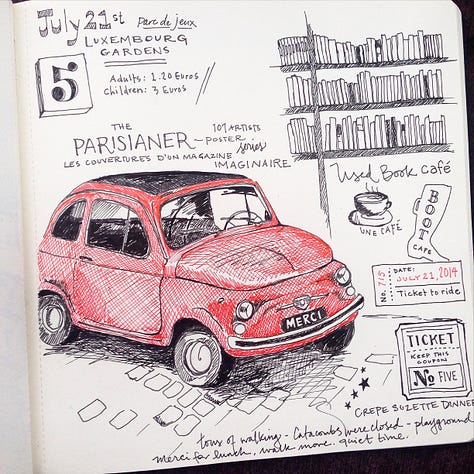 July 21st Parc de jeux
LUXEMBOURG
GARDENS
5
Adults: 1.20 Euros
Children: 3 Euros
THE
PARISIANER -
107 ARTISTS
POSTER
series
LES COUVERTURES D'UN MAGAZINE
IMAGINAIRE
Used Book Café
UNE CAFÉ
BOOT
CAFE
DATE:
JULY 21, 2014
Ticket to ride
MERCI
TICKET
KEEP THIS
COUPON
No FIVE
CREPE SUZETTE DINNER
tons of walking - Catacombs were closed - playground
merci for lunch, walk more. quiet time.